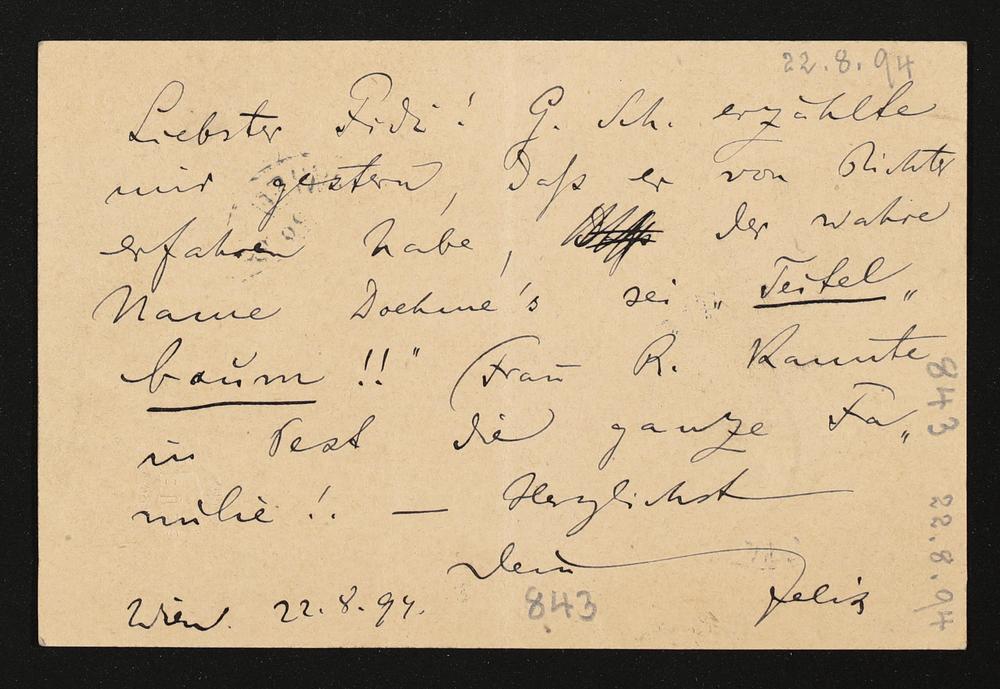 22.8.94
Liebster Fidi! G. Sch. erzählte
mir gestern, daß er von Richter
erfahren habe, der wahre
Name Doehme's sei „Teifel„
baum!!" (Frau R. kannte
in Pest die ganze Fa„
milie!. — Herzlichst
Dein
Felix
Wien. 22.8.94.
843
843 22.8.94